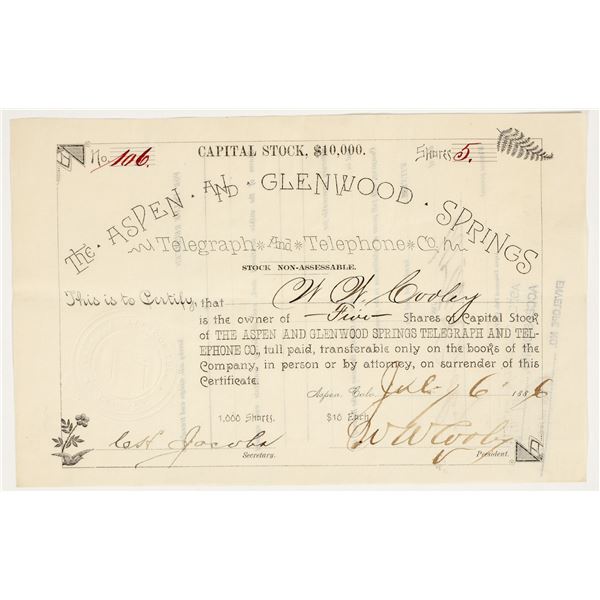 No. 106. CAPITAL STOCK, $10,000. Shares 5.
THE · ASPEN · AND · GLENWOOD · SPRINGS
Telegraph And Telephone Co.
STOCK NON-ASSESSABLE.
This is to Certify, that W W Cooley
is the owner of Five Shares of Capital Stock
of THE ASPEN AND GLENWOOD SPRINGS TELEGRAPH AND TEL-
EPHONE CO., full paid, transferable only on the books of the
Company, in person or by attorney, on surrender of this
Certificate.
Aspen, Colo. July 6 1886
1,000 Shares. $10 Each
Jacobs W W Cooley
Secretary. President.
ENVELOPE NO.